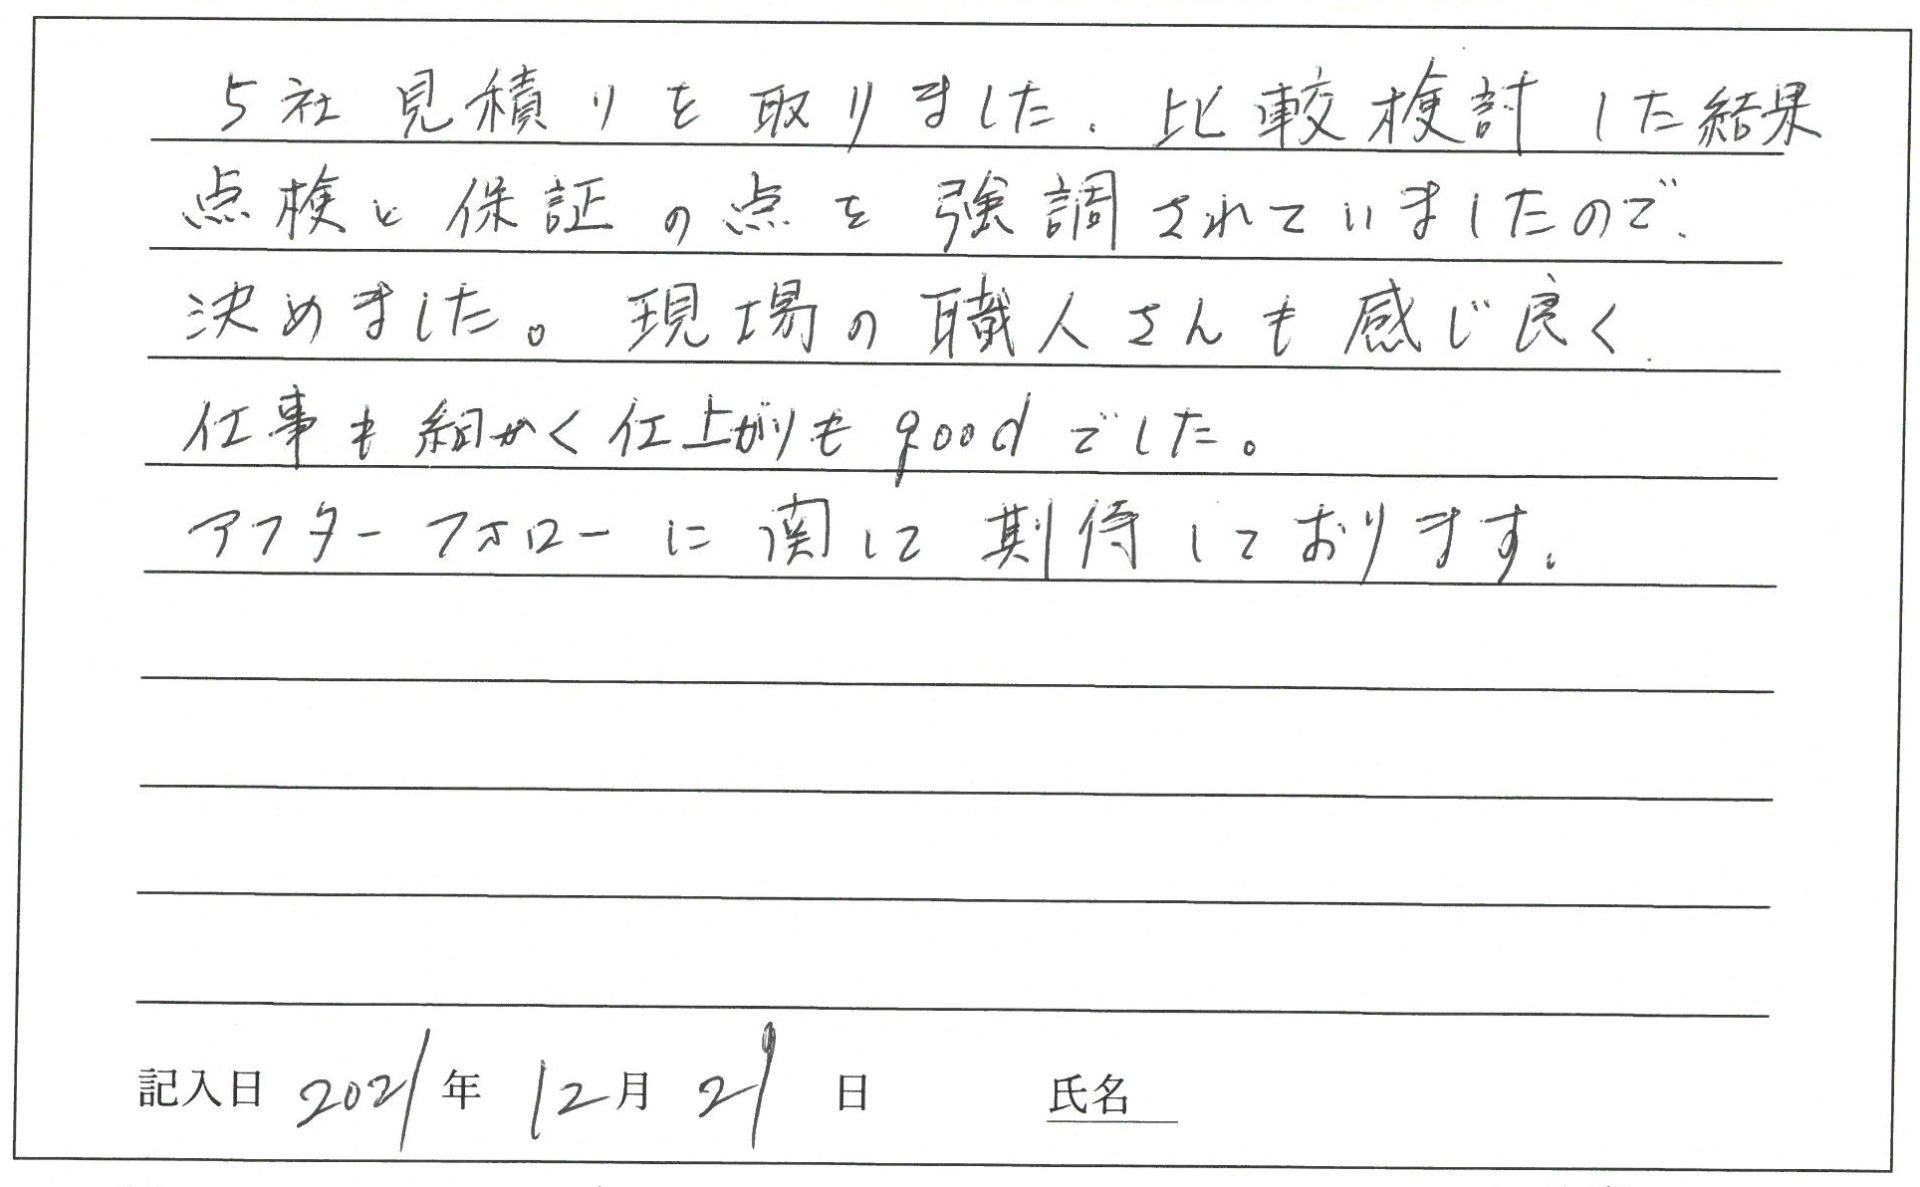 5社見積りを取りました。比較検討した結果
点検と保証の点を強調されていましたので、
決めました。現場の職人さんも感じ良く、
仕事も細かく仕上がりもgoodでした。
アフターフォローに関して期待しております。
記入日 2021年 12月 21日 氏名